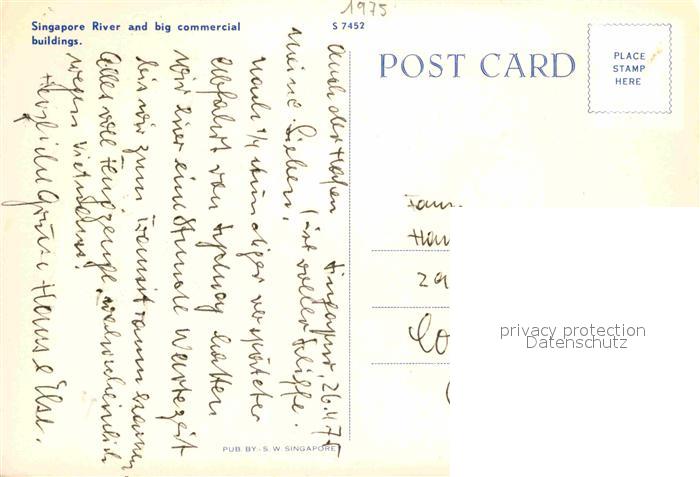 1975
Singapore River and big commercial
buildings.
S 7452
POST CARD
PLACE
STAMP
HERE
Singapur, 26.4.75
Auch der Hafen
ist voller Schiffe.
Meine Lieben,
nach 1/4 stündiger verspäteter
Abfahrt von Sydney hatten
wir hier eine Stunde Wartezeit
bis wir zum Transitraum kamen
Alles voll Flugzeuge, wahrscheinlich
wegen Vietnams!
Herzliche Grüsse Hans & Else.
Fam
29
PUB. BY - S. W. SINGAPORE
privacy protection
Datenschutz